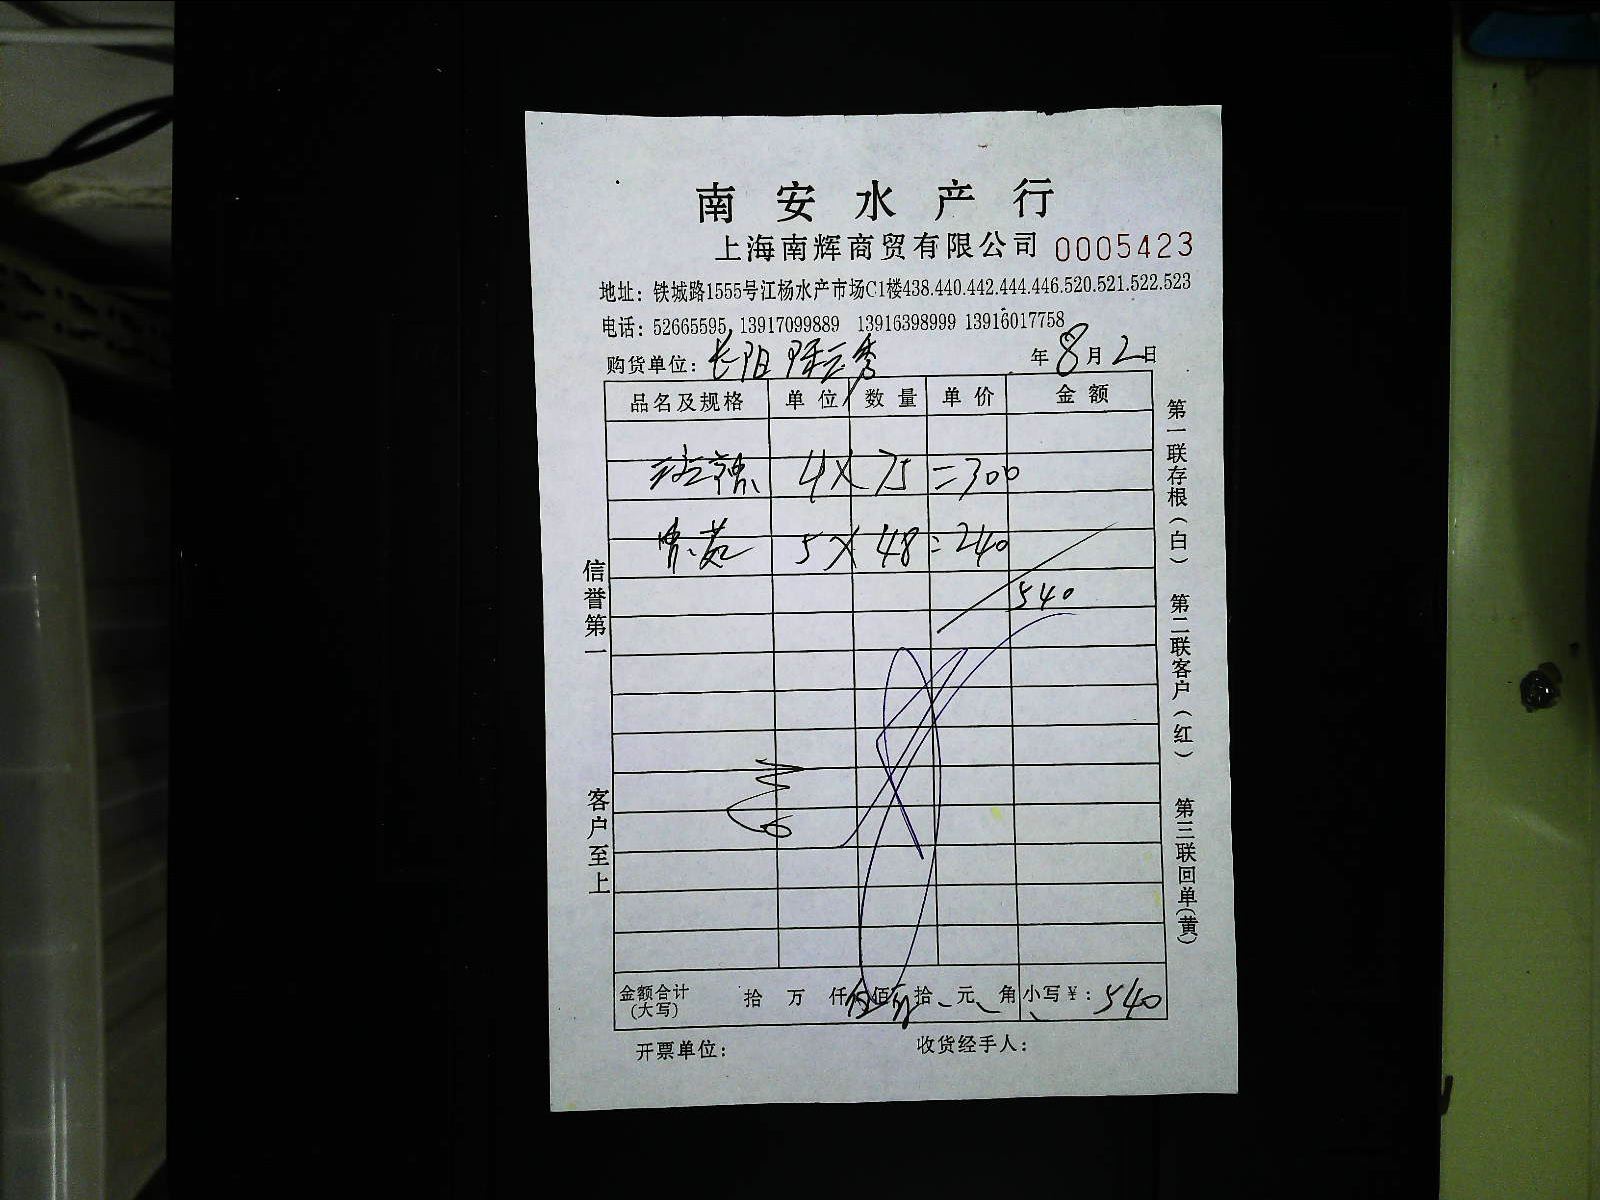 南安水产行
上海南辉商贸有限公司 0005423
地址：铁城路1555号江杨水产市场C1楼438.440.442.444.446.520.521.522.523
电话：52665595 13917099889 13916398999 13916017758
购货单位：长阳 年8月2日
品名及规格 单位 数量 单价 金额
4×75=300
5×48=240
540
金额合计(大写) 拾 万 仟 伍佰 拾 元 角 小写￥：540
开票单位： 收货经手人：
信誉第一 客户至上
第一联存根(白) 第二联客户(红) 第三联回单(黄)